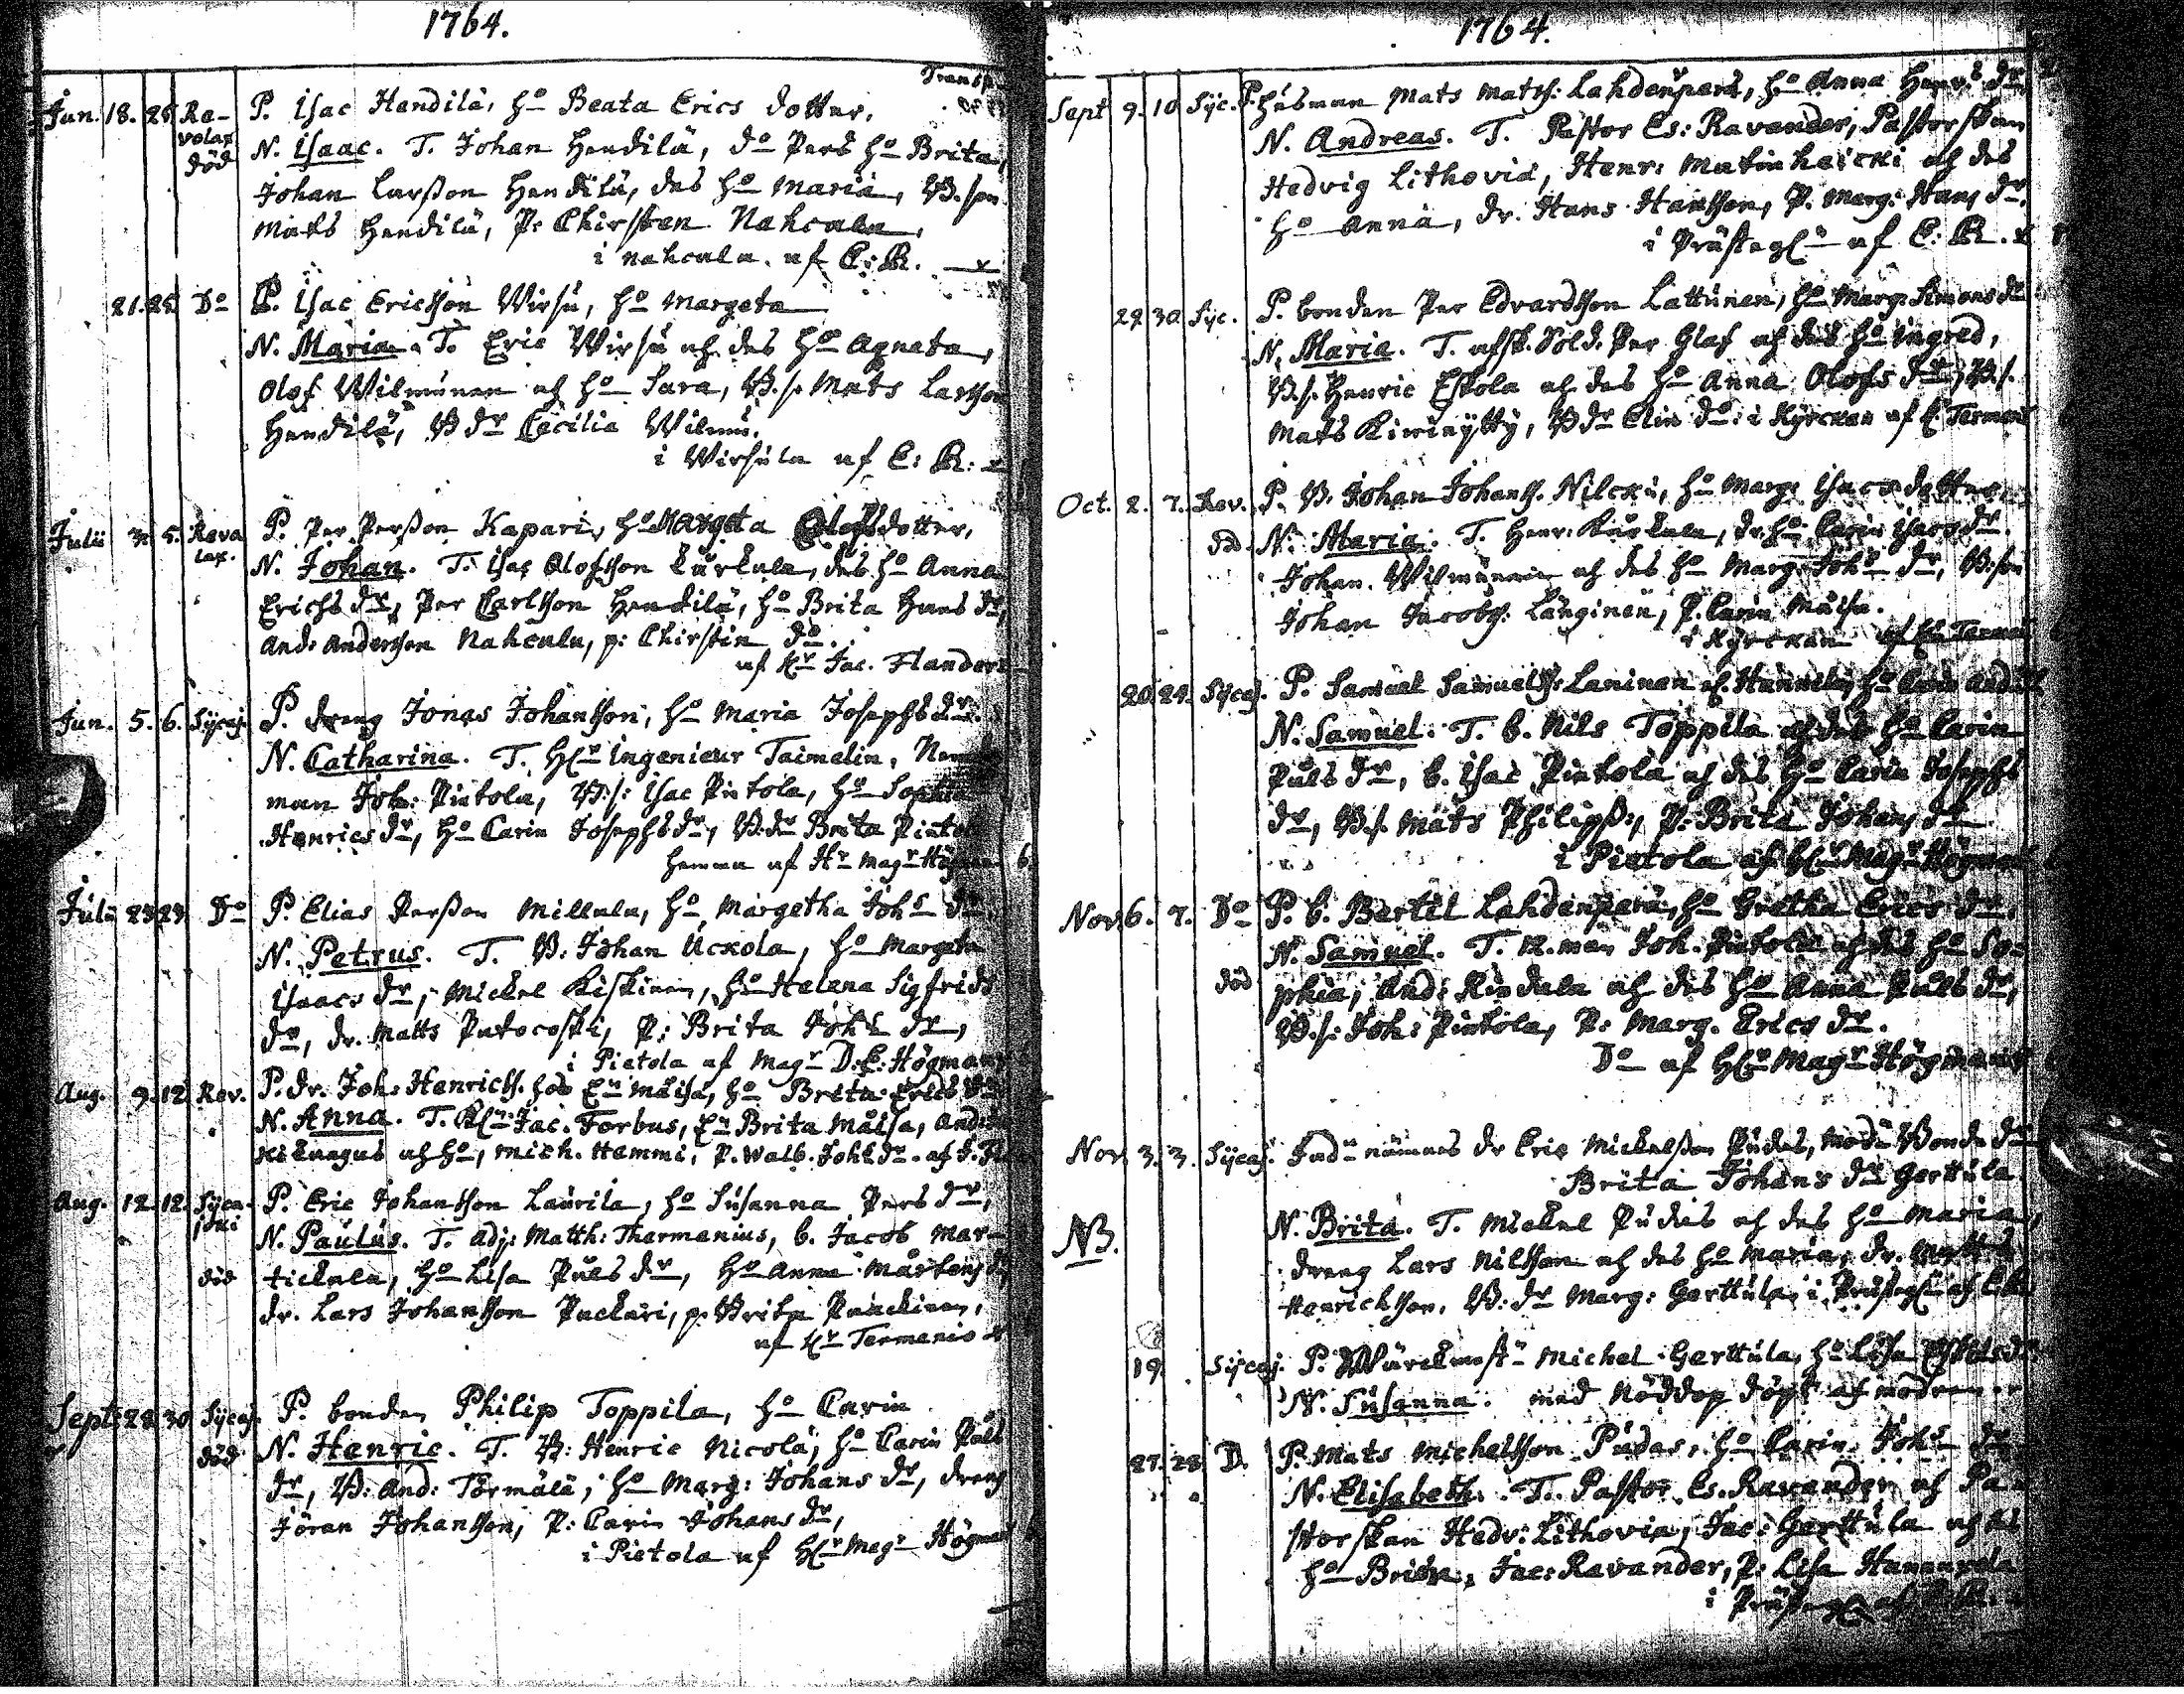 1764.
Transp.
Jun. 18. 25 Re- P. Isac Handilä, ho Beata Erics dotter.
volax N. Isaac. T. Johan Hendilä, do Pers ho Brita,
död Johan Larsson Hendilä, des ho Maria, B. son
Mats Hendilä, P. Chirstin Nahcala,
i Nahcala. af E: R.
21. 25 Do P. Isac Ericsson Wirsu, ho Margeta
N. Maria. T. Eric Wirsu och des ho Agneta,
Olof Wilmunen och ho Sara, B. s. Mats Larsson
Hendilä, B dr Cecilia Wilmu.
i Wirsula af E: R:
Julii 3. 5. Reva P. Per Persson Kapari, ho Margeta Olofsdotter,
lax. N. Johan. T. Isac Olofsson Kurkula, des ho Anna
Erichs dr, Per Carlsson Hendilä, ho Brita Hans dr,
And: Andersson Nahculu, p: Chirstin do.
af Hr Jac. Flander
Jun. 5. 6. Sycaj. P. dreng Jonas Johansson, ho Maria Josephs dr.
N. Catharina. T. Hr ingenieur Taimelin,
man Joh: Pintola, B: s: Isac Pintola, ho Sophia
Henrics dr, ho Carin Josephs dr, B: dr Brita Pintola
hemma af Hr Magr Högman
Julii 23 23 Do P. Elias Persson Millula, ho Margetha Johs dr
N. Petrus. T. B. Johan Uckola, ho Margeta
Isaacs dr, Mickel Kiskinen, ho Helena Sigfrids
dr, dr. Matts Putocoski, P: Brita Johs dr,
i Pietola af Magr D. E: Högman
Aug. 9. 12 Rev. P. dr. Joh: Henrichs. hos En Måisa, ho Brita Erics dr
N. Anna. T. Jac. Forbus, En Brita Måisa, And:
och ho, Mich. Hemmi, P. Walb. Johs dr. af
Aug. 12 12. Syca- P. Eric Johansson Laurila, ho Susanna Pers dr,
joki N. Paulus. T. Adj: Matth: Tharmanius, b. Jacob Mar-
död tickala, ho Lisa Puls dr, ho Anna Mårtens dr
dr. Lars Johansson Puckari, p. Brita Puuckinen,
af Hr Termenio
Septr 28 30 Sycaj. P. bonden Philip Toppila, ho Carin
död N. Henric. T. B: Henric Nicola, ho Carin Påls
dr, B: And: Törmälä, ho Marg: Johans dr, dreng
Jöran Johansson, P: Carin Johans dr,
i Pietola af Hr Magr Högman
1764.
Sept 9. 10 Syc. P. Husman Mats Matss: Lahdenperä, ho Anna Henrs dr
N. Andreas. T. Pastor Es: Ravander, Pastorskan
Hedvig Lithovia, Henr: Matinheicki och des
ho Anna, dr. Hans Hansson, P. Marg: Hans dr.
i Prästegn af E: R.
29 30 Syc. P. bonden Per Edvardsson Lattunen, ho Marg: Simons dr
N. Maria. T. afsk. Sold. Per Glaf och des ho Ingred,
B. s. Henric Eskola och des ho Anna Olofs dr, B. s.
Mats Kiviniytty, B dr Elin do: i Kyrckan af E. Termen
Oct. 2. 7. Rev. P. B. Johan Johans. Nilcku, ho Marg: Isacs dotter
död N. Maria. T. Henr: Kurkula, dr. ho Carin Isacs dr.
Johan Wilmunen och des ho Marg. Johs dr, B: son
Johan Jacobss: Länginen, P. Carin Måisa.
i Kyrckan af
20. 24. Sycaj. P. Samuel Samuelss: Laninen af Hannula, ho Carin
N. Samuel. T. b. Nils Toppila och des ho Carin
Puls dr, b. Isac Pietola och des ho Carin Josephs
dr, B. s. Mats Philipss:, P. Brita Johans dr
i Pietola af Hr Magr Högman
Nov. 6. 7. Do P. b. Bertil Lahdenperä, ho Gretha Erics dr.
N. Samuel. T. N. man Joh. Pintola och des ho So-
död phia, And: Rindala och des ho Anna Puls dr,
B: s: Joh: Pintola, P: Marg. Erics dr.
Do af Hr Magr Högman
Nov. 3. 3. Sycaj. Fadn nämnes dr Eric Mickelsson Pudas, modn Bonde dr
Brita Johans dr Gerttula
NB. N. Brita. T. Mickel Pudas och des ho Maria,
dreng Lars Nilsson och des ho Maria, dr. Matts
Henrichsson, B: dr Marg: Gerttula, i Prästegn af
19. Sycaj. P. Michel Gerttula, ho Lisa
N. Susanna. med Nöddop döpt af modren
27. 28 D. P. Mats Michelsson Pudas, ho Carin Johs dr
N. Elisabeth. T. Pastor Es. Ravander och Pa-
storskan Hedv: Lithovia, Jac: Gerttula och des
ho Brita, Jac: Ravander, P: Lisa Hannunela
i Prästegn af E: R.